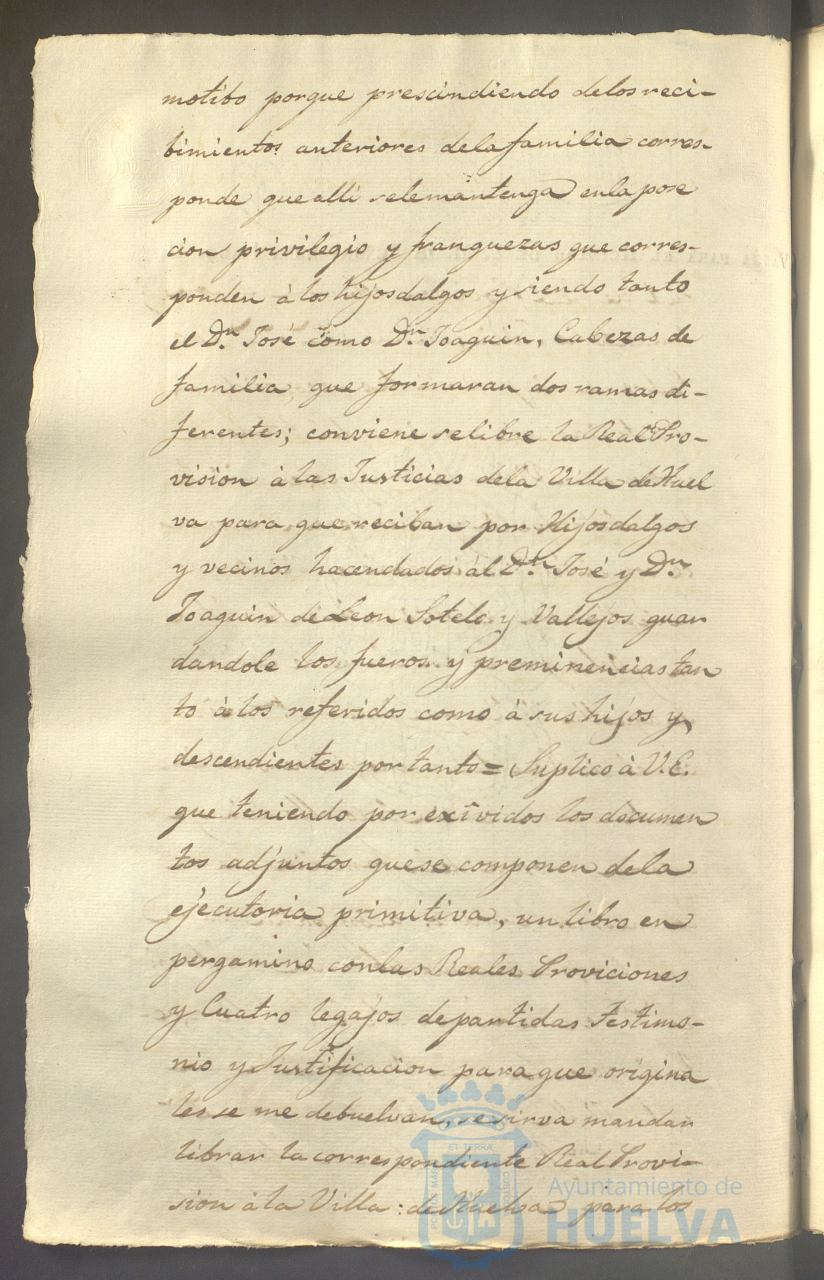 motibo porque prescindiendo delos reci-
bimientos anteriores dela familia corres-
ponde que alli sele mantenga enla pose
cion privilegio y franquezas que corres-
ponden à los hijosdalgos y siendo tanto
el Dn. José como Dn. Joaquin, Cabezas de
familia que formaran dos ramas di-
ferentes; conviene se libre la Real Pro-
vision à las Justicias dela Villa de Huel
va para que reciban por Hijosdalgos
y vecinos hacendados àl Dn. José y Dn.
Joaquin de Leon Sotelo y Vallejos guar
dandole los fueros y preminencias tan
to à los referidos como à sus hijos y
descendientes por tanto = Suplico à V.E.
que teniendo por exividos los documen
tos adjuntos que se componen dela
ejecutoria primitiva, un libro en
pergamino con las Reales Proviciones
y Cuatro legajos de partidas Testimo-
nio y Justificacion para que origina
les se me debuelvan, se sirva mandar
librar la correspondiente Real Provi-
sion à la Villa de Huelva para los
Ayuntamiento de
HUELVA